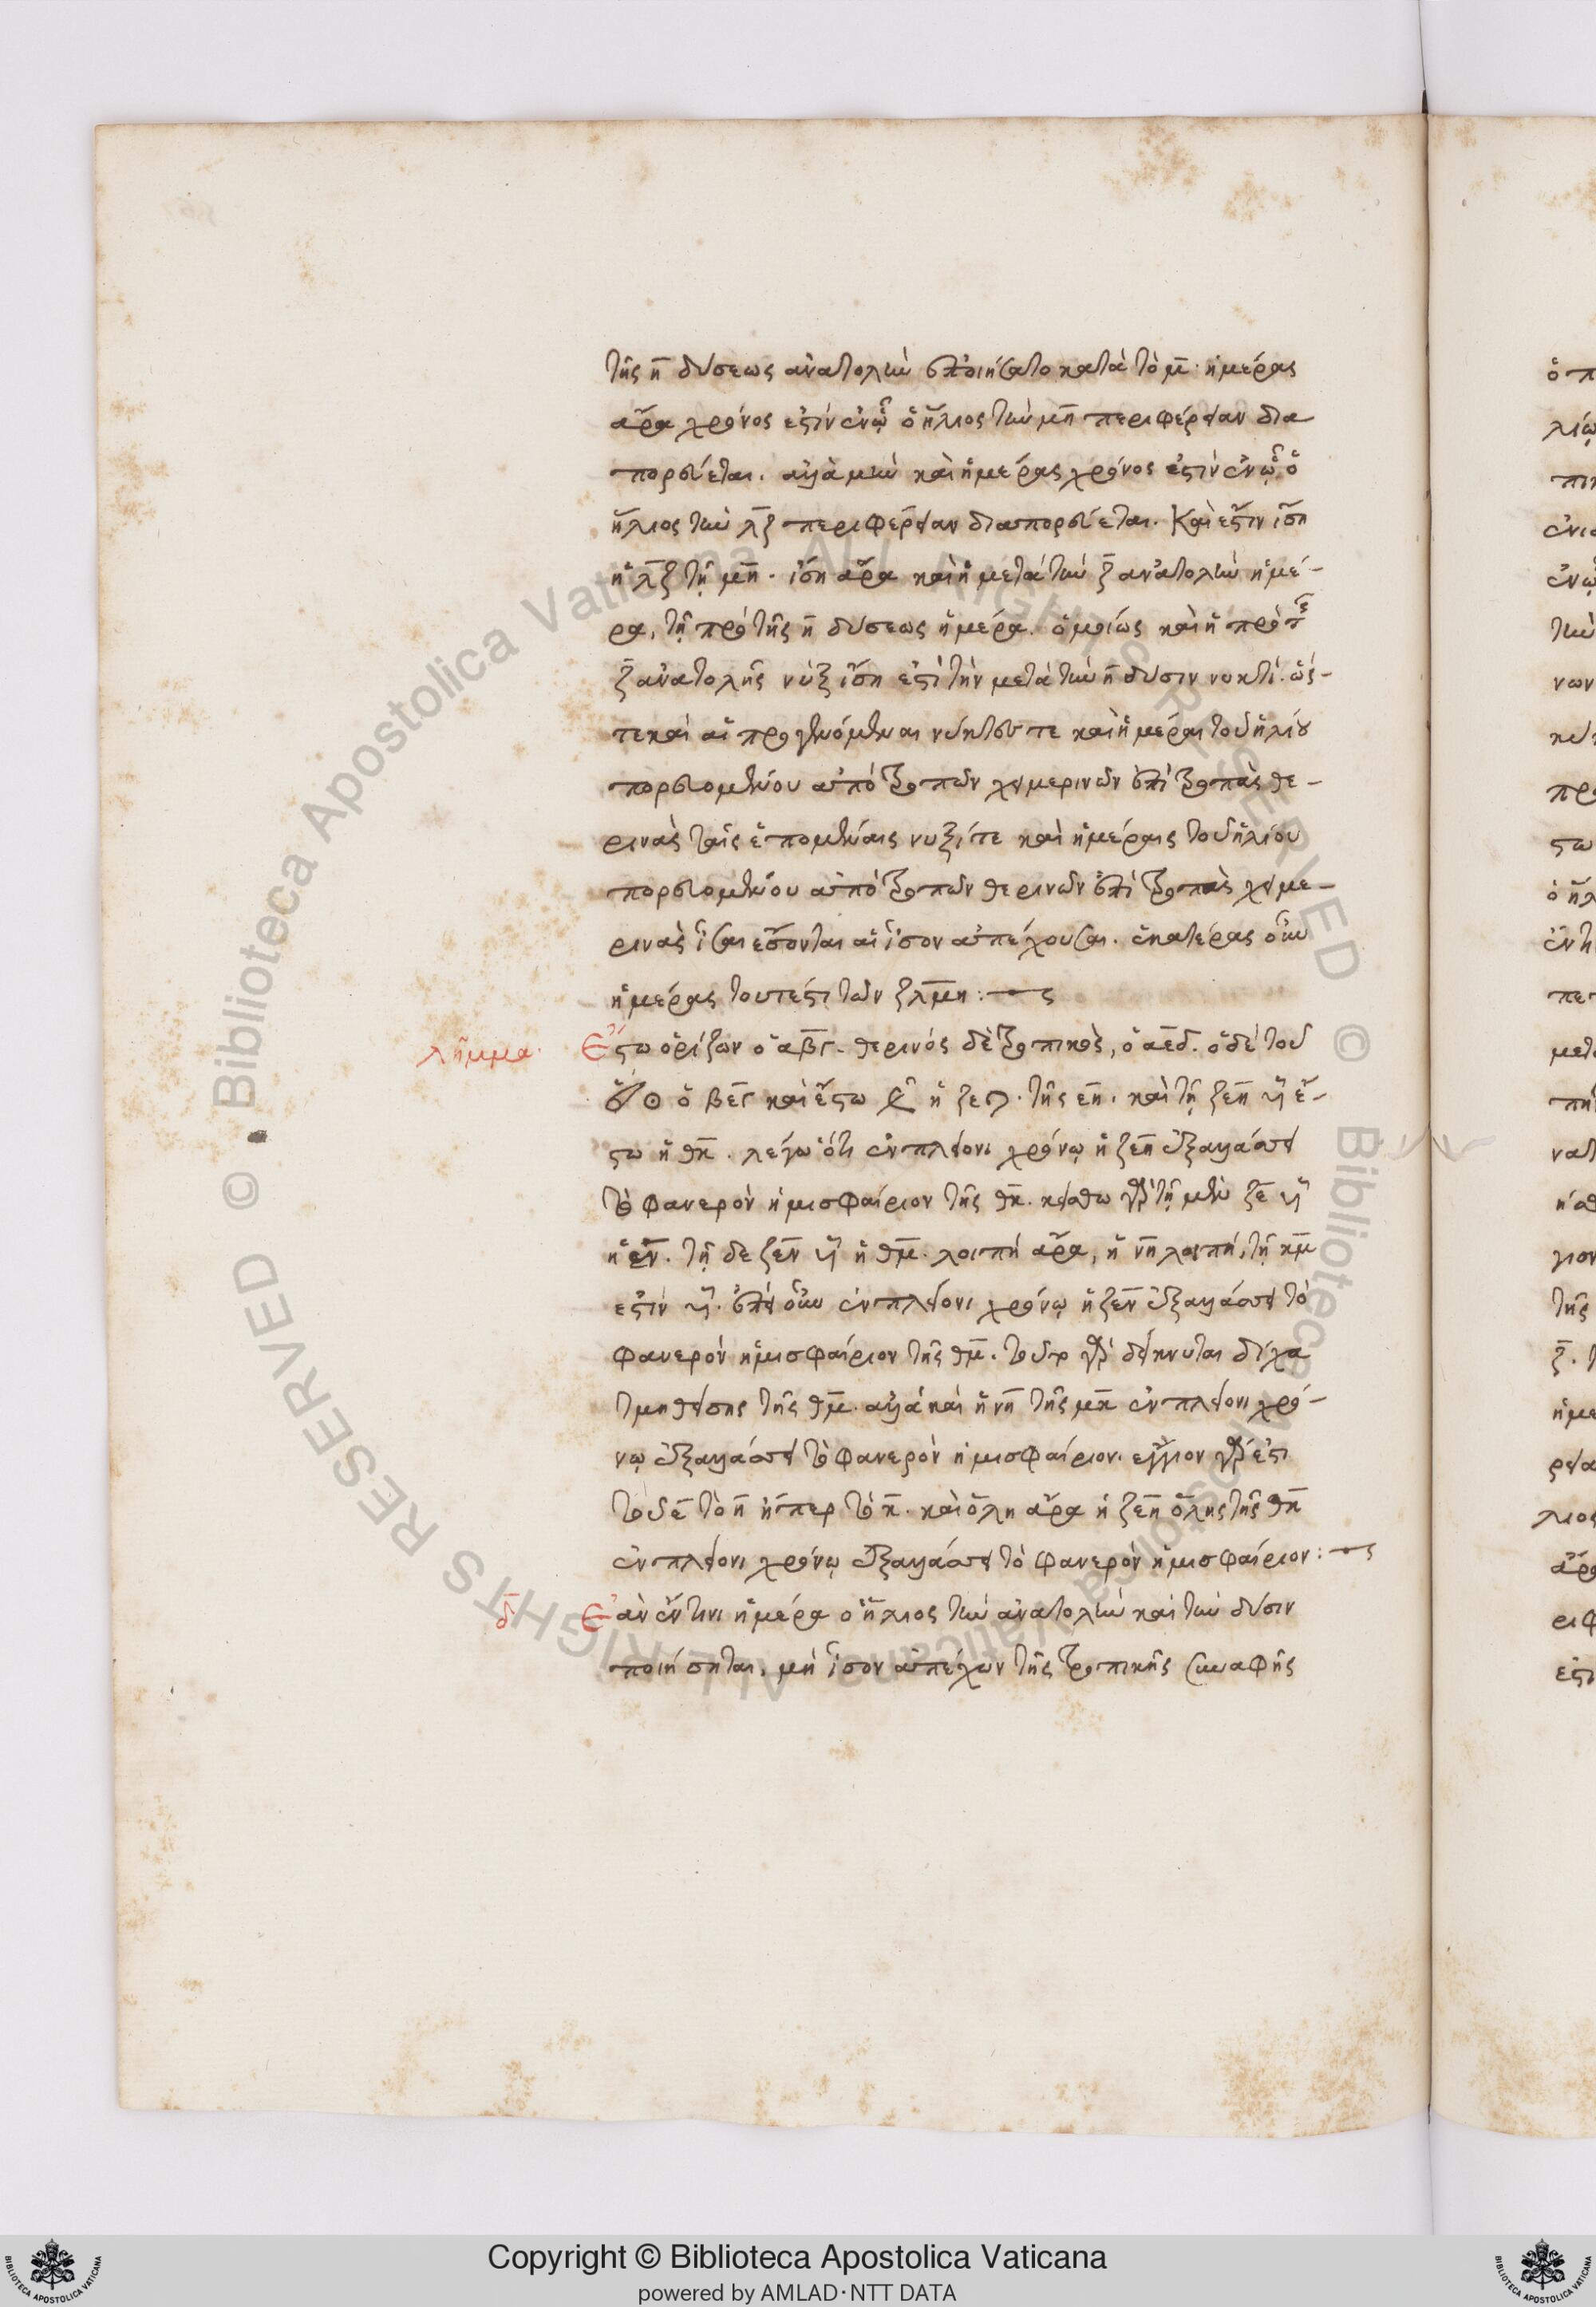 τῆς η̄ δύσεως ἀνατολὴν ἐποιήσατο κατὰ τὸ μ̄· ἡμέρας
ἄρα χρόνος ἐστὶν ἐν ᾧ ὁ ἥλιος τὴν μη̄ περιφέρειαν δια
πορεύεται. ἀλλὰ μὴν καὶ ἡμέρας χρόνος ἐστὶν ἐν ᾧ ὁ
ἥλιος τὴν λ̄ξ περιφέρειαν διαπορεύεται. Καὶ ἔστιν ἴση
ἡ λ̄ξ τῇ μη̄. ἴση ἄρα καὶ ἡ μετὰ τὴν ξ̄ ἀνατολὴν ἡμέ-
ρα, τῇ πρὸ τῆς η̄ δύσεως ἡμέρα. ὁμοίως καὶ ἡ πρὸ τῆς
ξ̄ ἀνατολῆς νὺξ ἴση ἐστὶ τὴν μετὰ τὴν η̄ δύσιν νυκτί. ὥσ-
τε καὶ αἱ προγενόμεναι νύκτες τε καὶ ἡμέραι τοῦ ἡλίου
πορευομένου ἀπὸ τροπῶν χειμερινῶν ἐπὶ τροπὰς θε-
ρινὰς ταῖς ἑπομέναις νυξί τε καὶ ἡμέραις τοῦ ἡλίου
πορευομένου ἀπὸ τροπῶν θερινῶν ἐπὶ τροπὰς χειμε-
ρινὰς ἴσαι ἔσονται αἱ ἴσον ἀπέχουσαι. ἑκατέρας οὖν
ἡμέρας τουτέστι τῶν ξλ̄μη :—
λῆμμα· Ἔστω ὁρίζων ὁ αβ̄γ. θερινὸς δὲ τροπικὸς, ὁ αε̄δ. ὁ δὲ τοῦ
ὁ βε̄γ καὶ ἔστω ἡ ζε τῆς εη̄. καὶ τῇ ζεη̄ ἴση ἔ-
στω ἡ θκ̄. λέγω ὅτι ἐν πλείονι χρόνῳ ἡ ζεη̄ ἐξαλλάσσει
τὸ φανερὸν ἡμισφαίριον τῆς θκ̄. κείσθω γὰρ τῇ μὲν ζε̄ ἴση
ἡ εν̄. τῇ δε ζεν̄ ἴση ἡ θμ̄. λοιπὴ ἄρα, ἡ νη̄ λοιπῇ, τῇ κμ̄
ἐστὶν ἴση. ἐπεὶ οὖν ἐν πλείονι χρόνῳ ἡ ζεν̄ ἐξαλλάσσει τὸ
φανερὸν ἡμισφαίριον τῆς θμ̄. τοῦτο γὰρ δείκνυται δίχα
τμηθείσης τῆς θμ̄. ἀλλὰ καὶ ἡ νη̄ τῆς μκ̄ ἐν πλείονι χρό-
νῳ ἐξαλλάσσει τὸ φανερὸν ἡμισφαίριον. ἔγγιον γάρ ἐστι
τοῦ ε̄ τὸ η̄ ἤπερ τὸ κ̄. καὶ ὅλη ἄρα ἡ ζεη̄ ὅλης τῆς θκ̄
ἐν πλείονι χρόνῳ ἐξαλλάσσει τὸ φανερὸν ἡμισφαίριον :—
δ̄ Ἐὰν ἔν τινι ἡμέρα ὁ ἥλιος τὴν ἀνατολὴν καὶ τὴν δύσιν
ποιήσηται, μὴ ἴσον ἀπέχων τῆς τροπικῆς συναφῆς
Copyright © Biblioteca Apostolica Vaticana
powered by AMLAD·NTT DATA